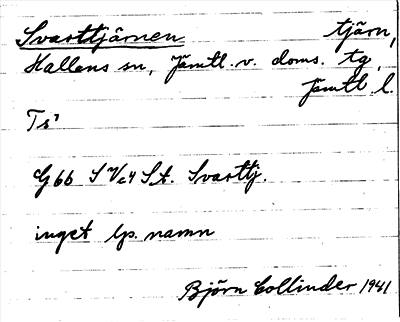 Svarttjärnen tjärn,
Hallens sn, Jämtl. v. doms. tg,
Jämtl. l.
Ts¹
G66 S V c4 St. Svarttj.
inget lp. namn
Björn Collinder 1941